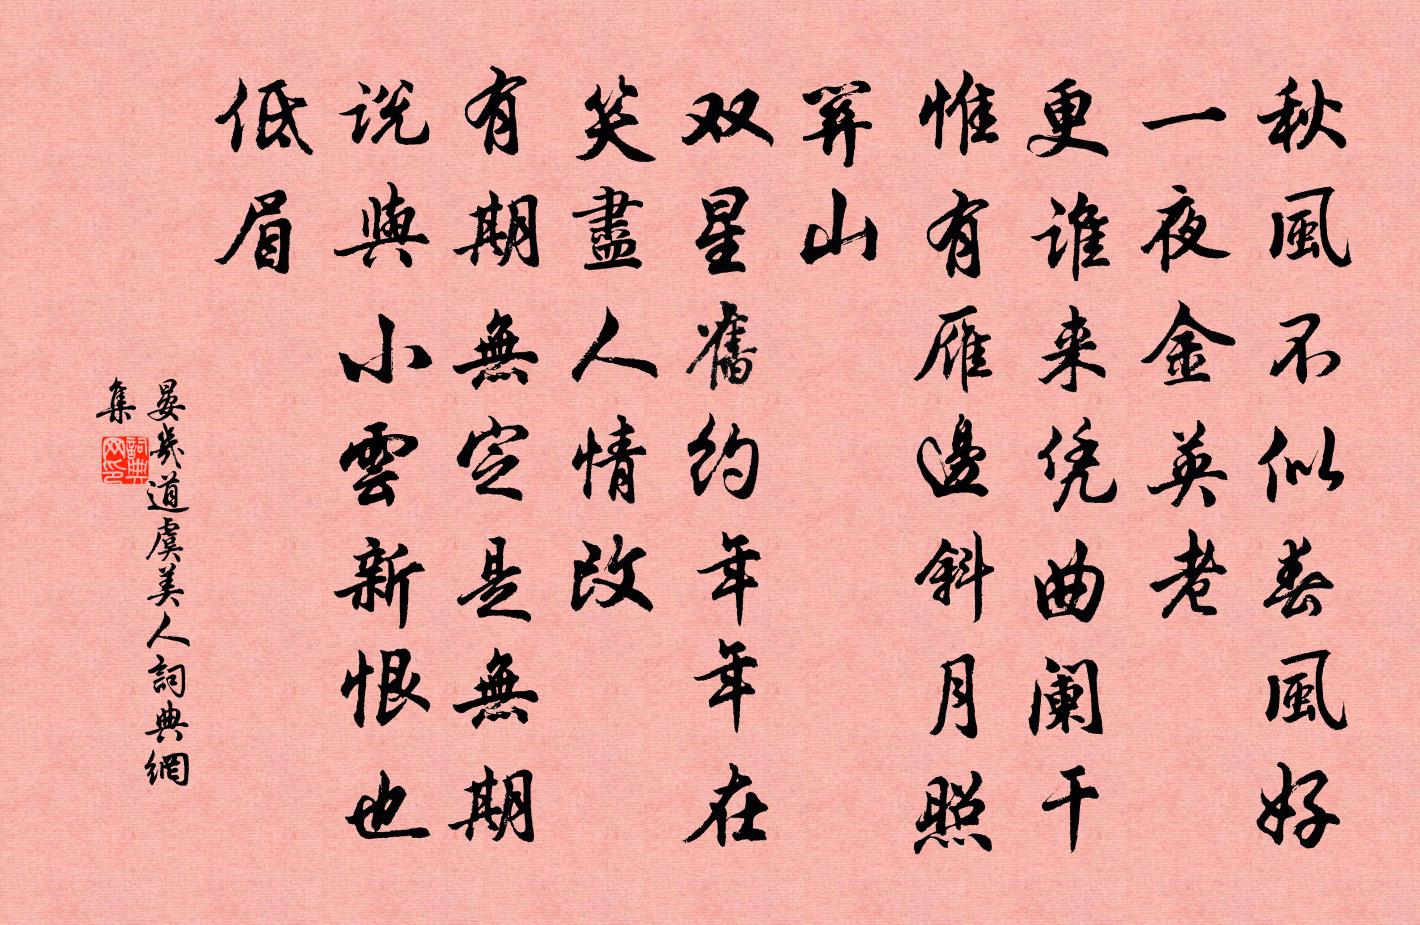 秋風不似春風好
一夜金英老
更谁来凭曲阑干
惟有雁邊斜月照
關山
双星舊約年年在
笑盡人情改
有期無定是無期
说與小雲新恨也
低眉
晏幾道虞美人詞典網
集
詞典
网印